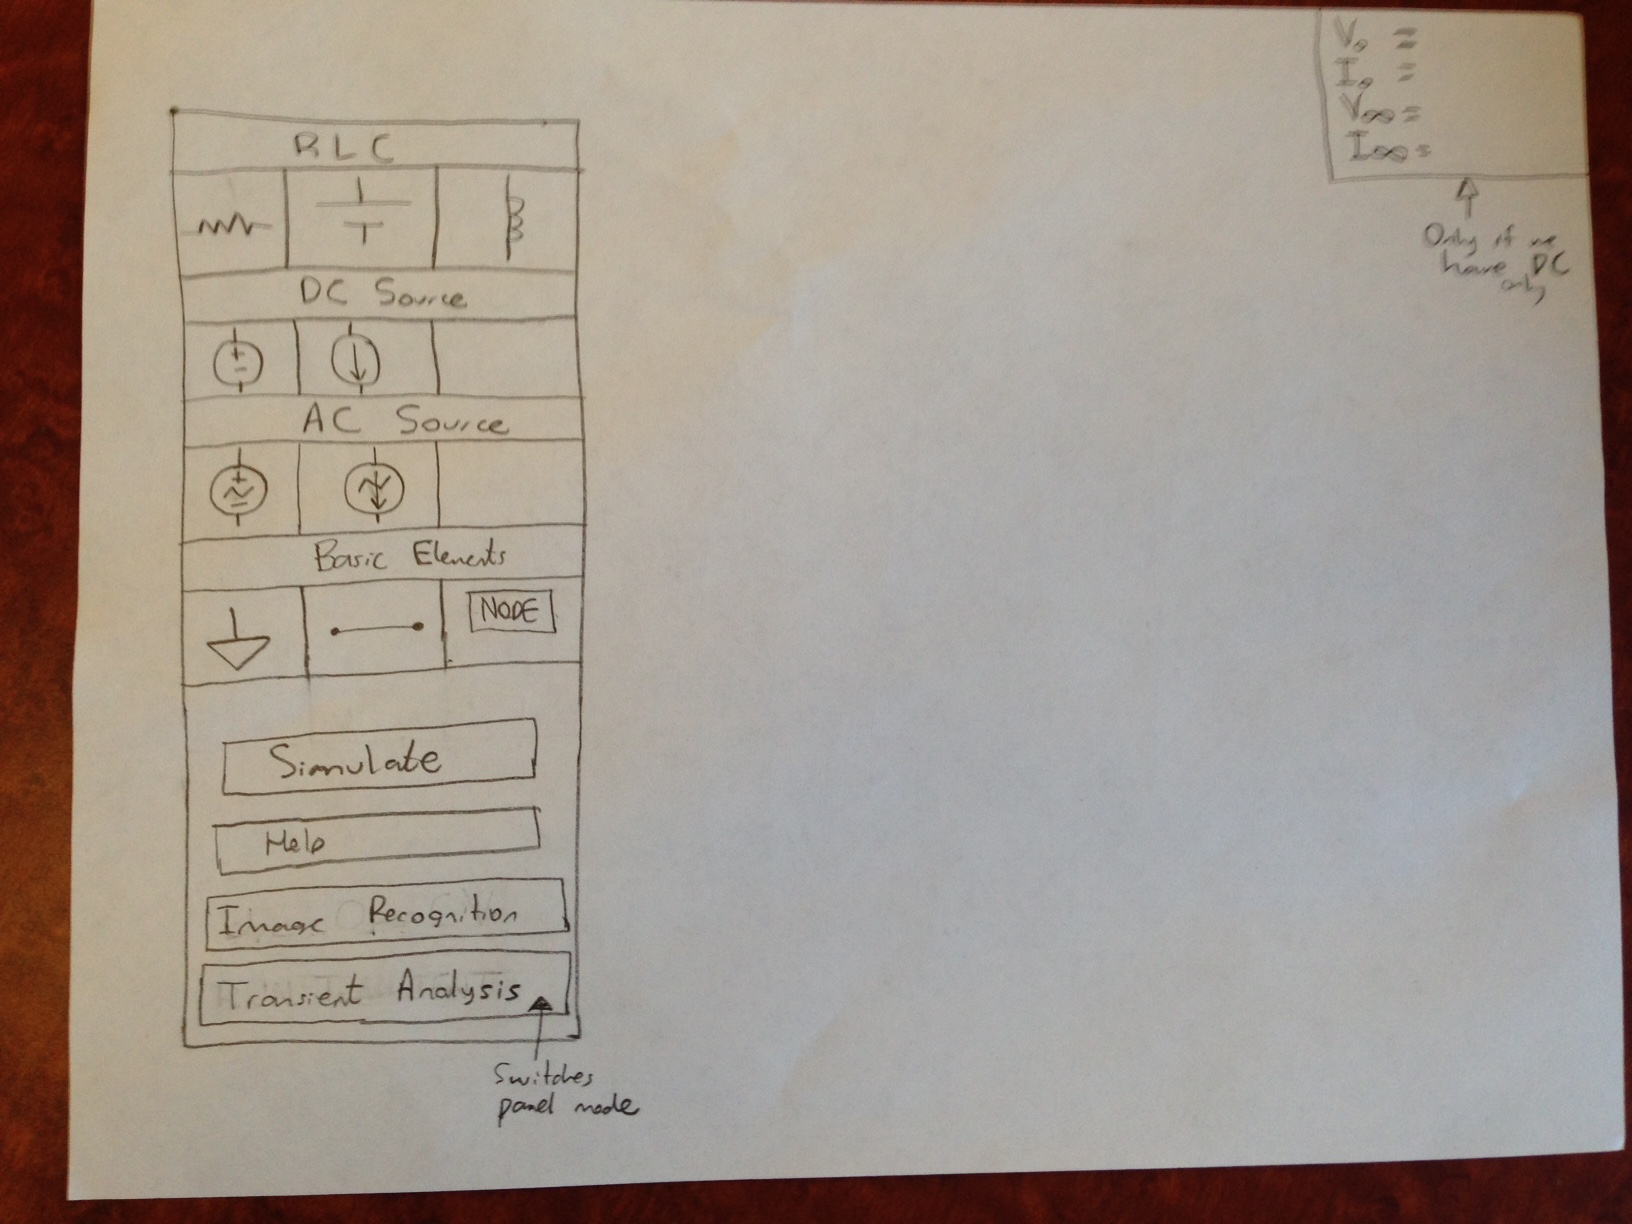 RLC
DC Source
+
-
AC Source
+
Basic Elements
NODE
Simulate
Help
Image Recognition
Transient Analysis
Switches
panel mode
V₀ =
I₀ =
V∞ =
I∞ =
Only if we
have DC
only